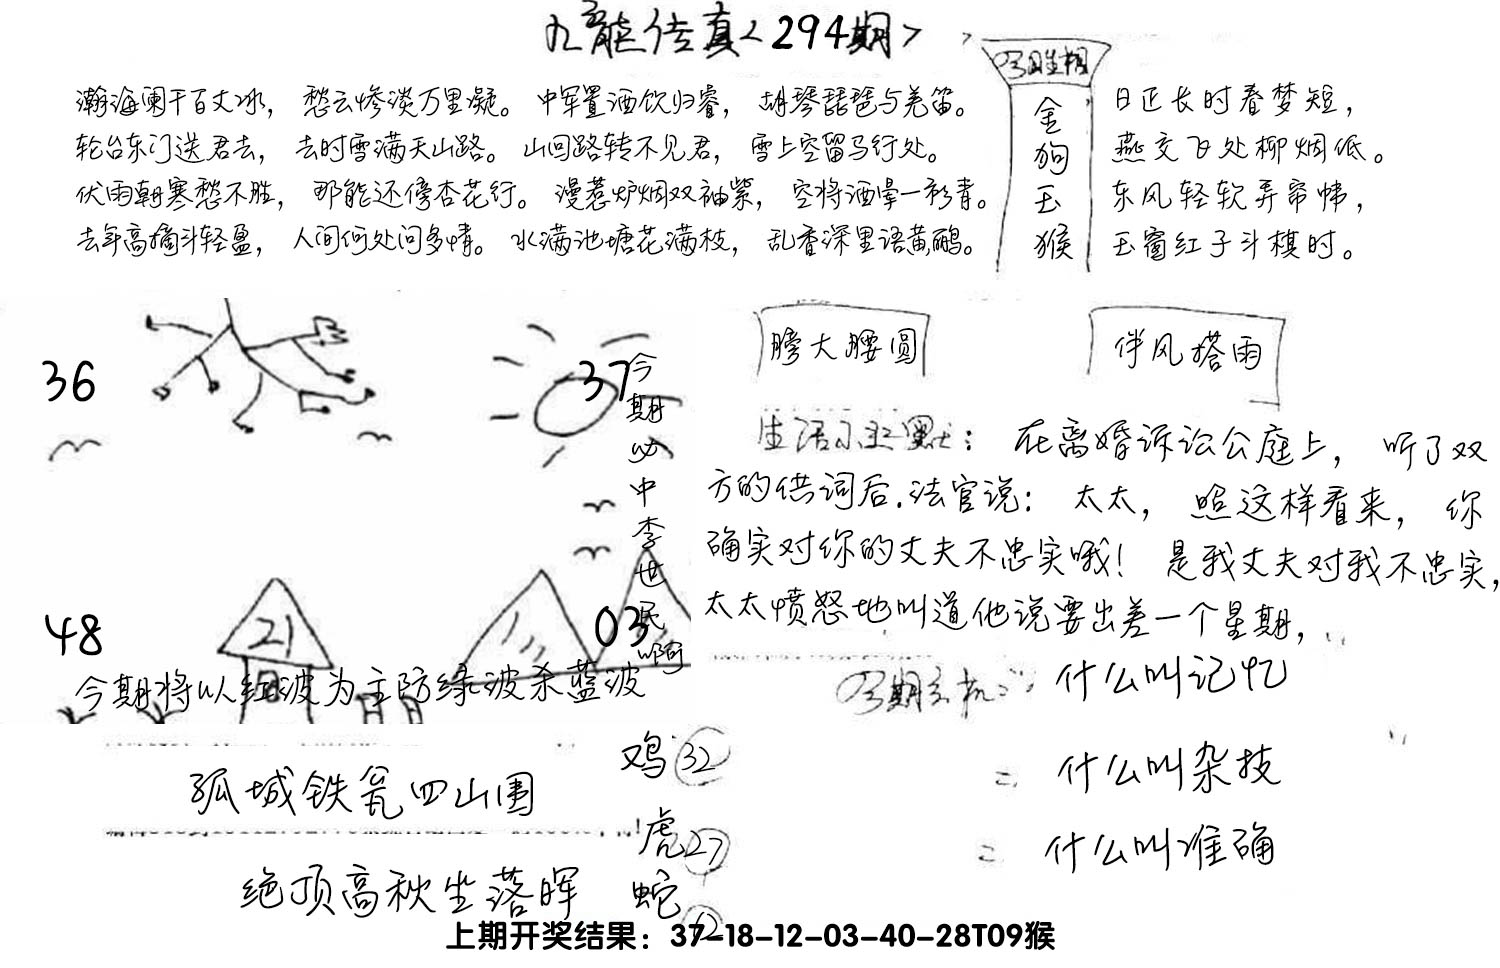 九龍传真<294期>
瀚海阑干百丈冰，愁云惨淡万里凝。中军置酒饮归睿，胡琴琵琶与羌笛。
轮台东门送君去，去时雪满天山路。山回路转不见君，雪上空留马行处。
伏雨朝寒愁不胜，那能还傍杏花行。漫惹炉烟双袖紫，空将酒晕一衫青。
去年高摘斗轻盈，人间何处问多情。水满池塘花满枝，乱香深里语黄鹂。
金
狗
玉
猴
日正长时春梦短，
燕交飞处柳烟低。
东风轻软弄帘帏，
玉窗红子斗棋时。
36
37
48
21
03
今期必中李世民啊
今期将以红波为主防绿波杀蓝波
膀大腰圆
伴风搭雨
生活小幽默：在离婚诉讼公庭上，听了双
方的供词后.法官说：太太，照这样看来，你
确实对你的丈夫不忠实哦！是我丈夫对我不忠实，
太太愤怒地叫道他说要出差一个星期，
今期玄机：什么叫记忆
什么叫杂技
什么叫准确
孤城铁瓮四山围
绝顶高秋坐落晖
鸡32
虎27
蛇12
上期开奖结果：37-18-12-03-40-28T09猴